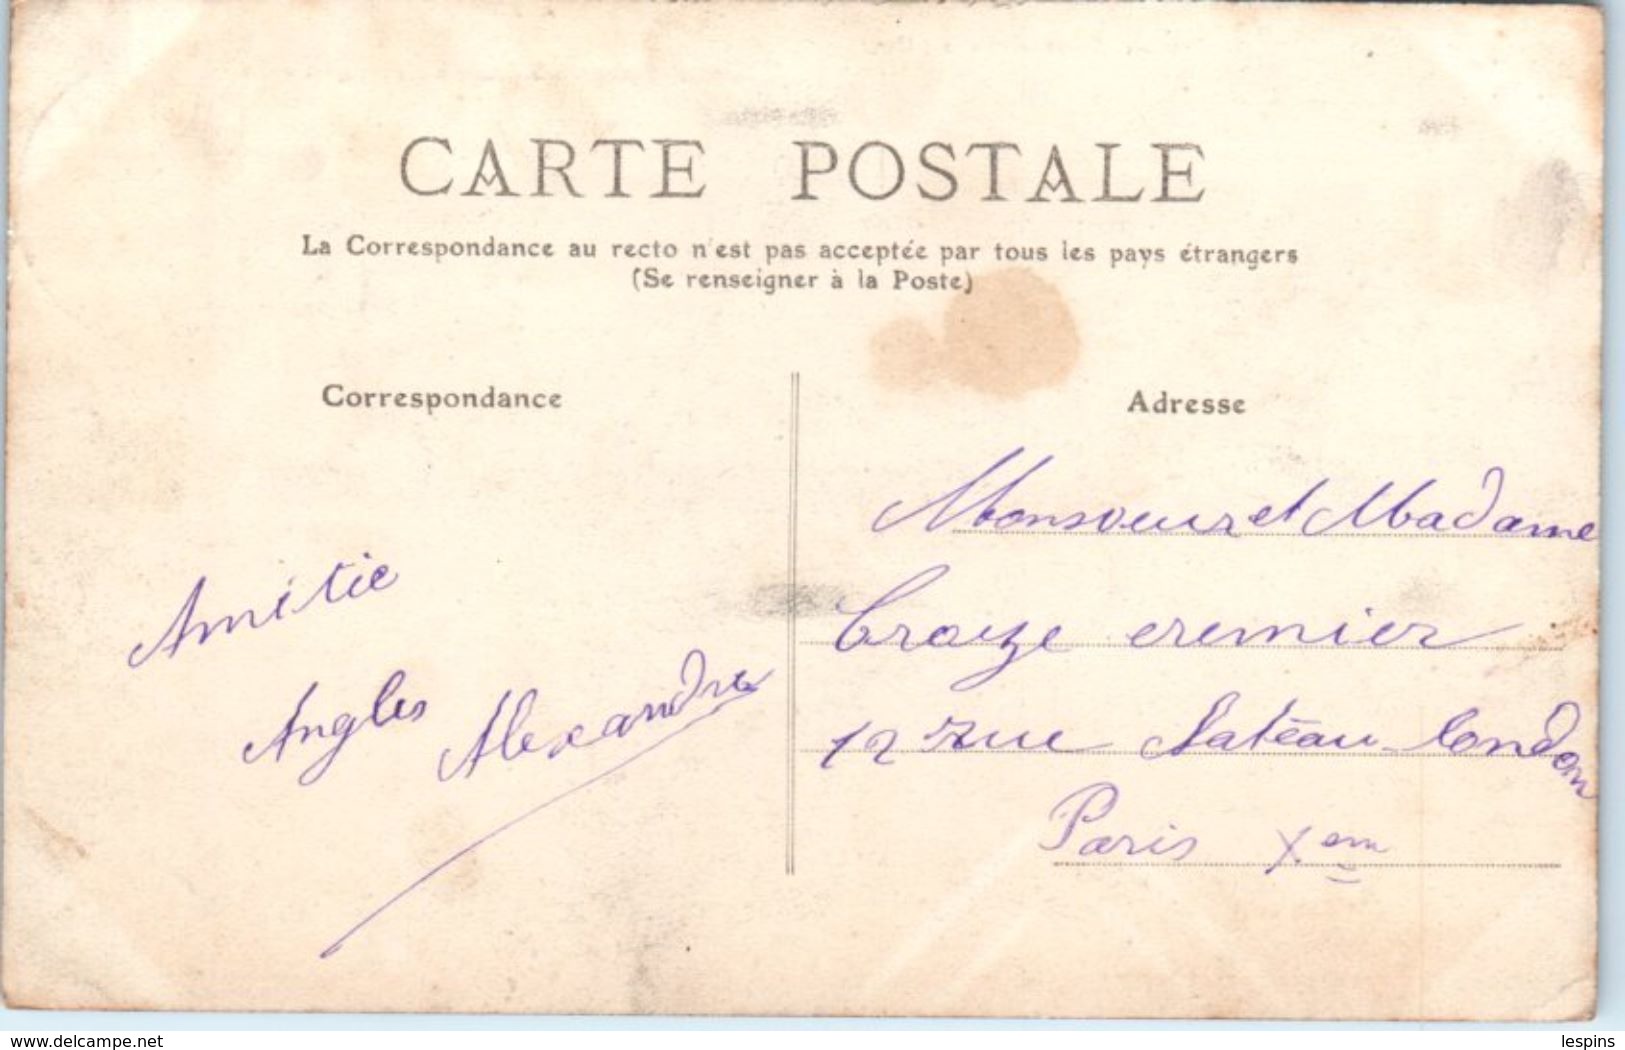 CARTE POSTALE
La Correspondance au recto n'est pas acceptée par tous les pays étrangers
(Se renseigner à la Poste)
Correspondance
Amitie
Angles Alexandre
Adresse
Monsieur et Madame
Croize cremier
12 rue Chateau-london
Paris Xem
delcampe.net
lespins